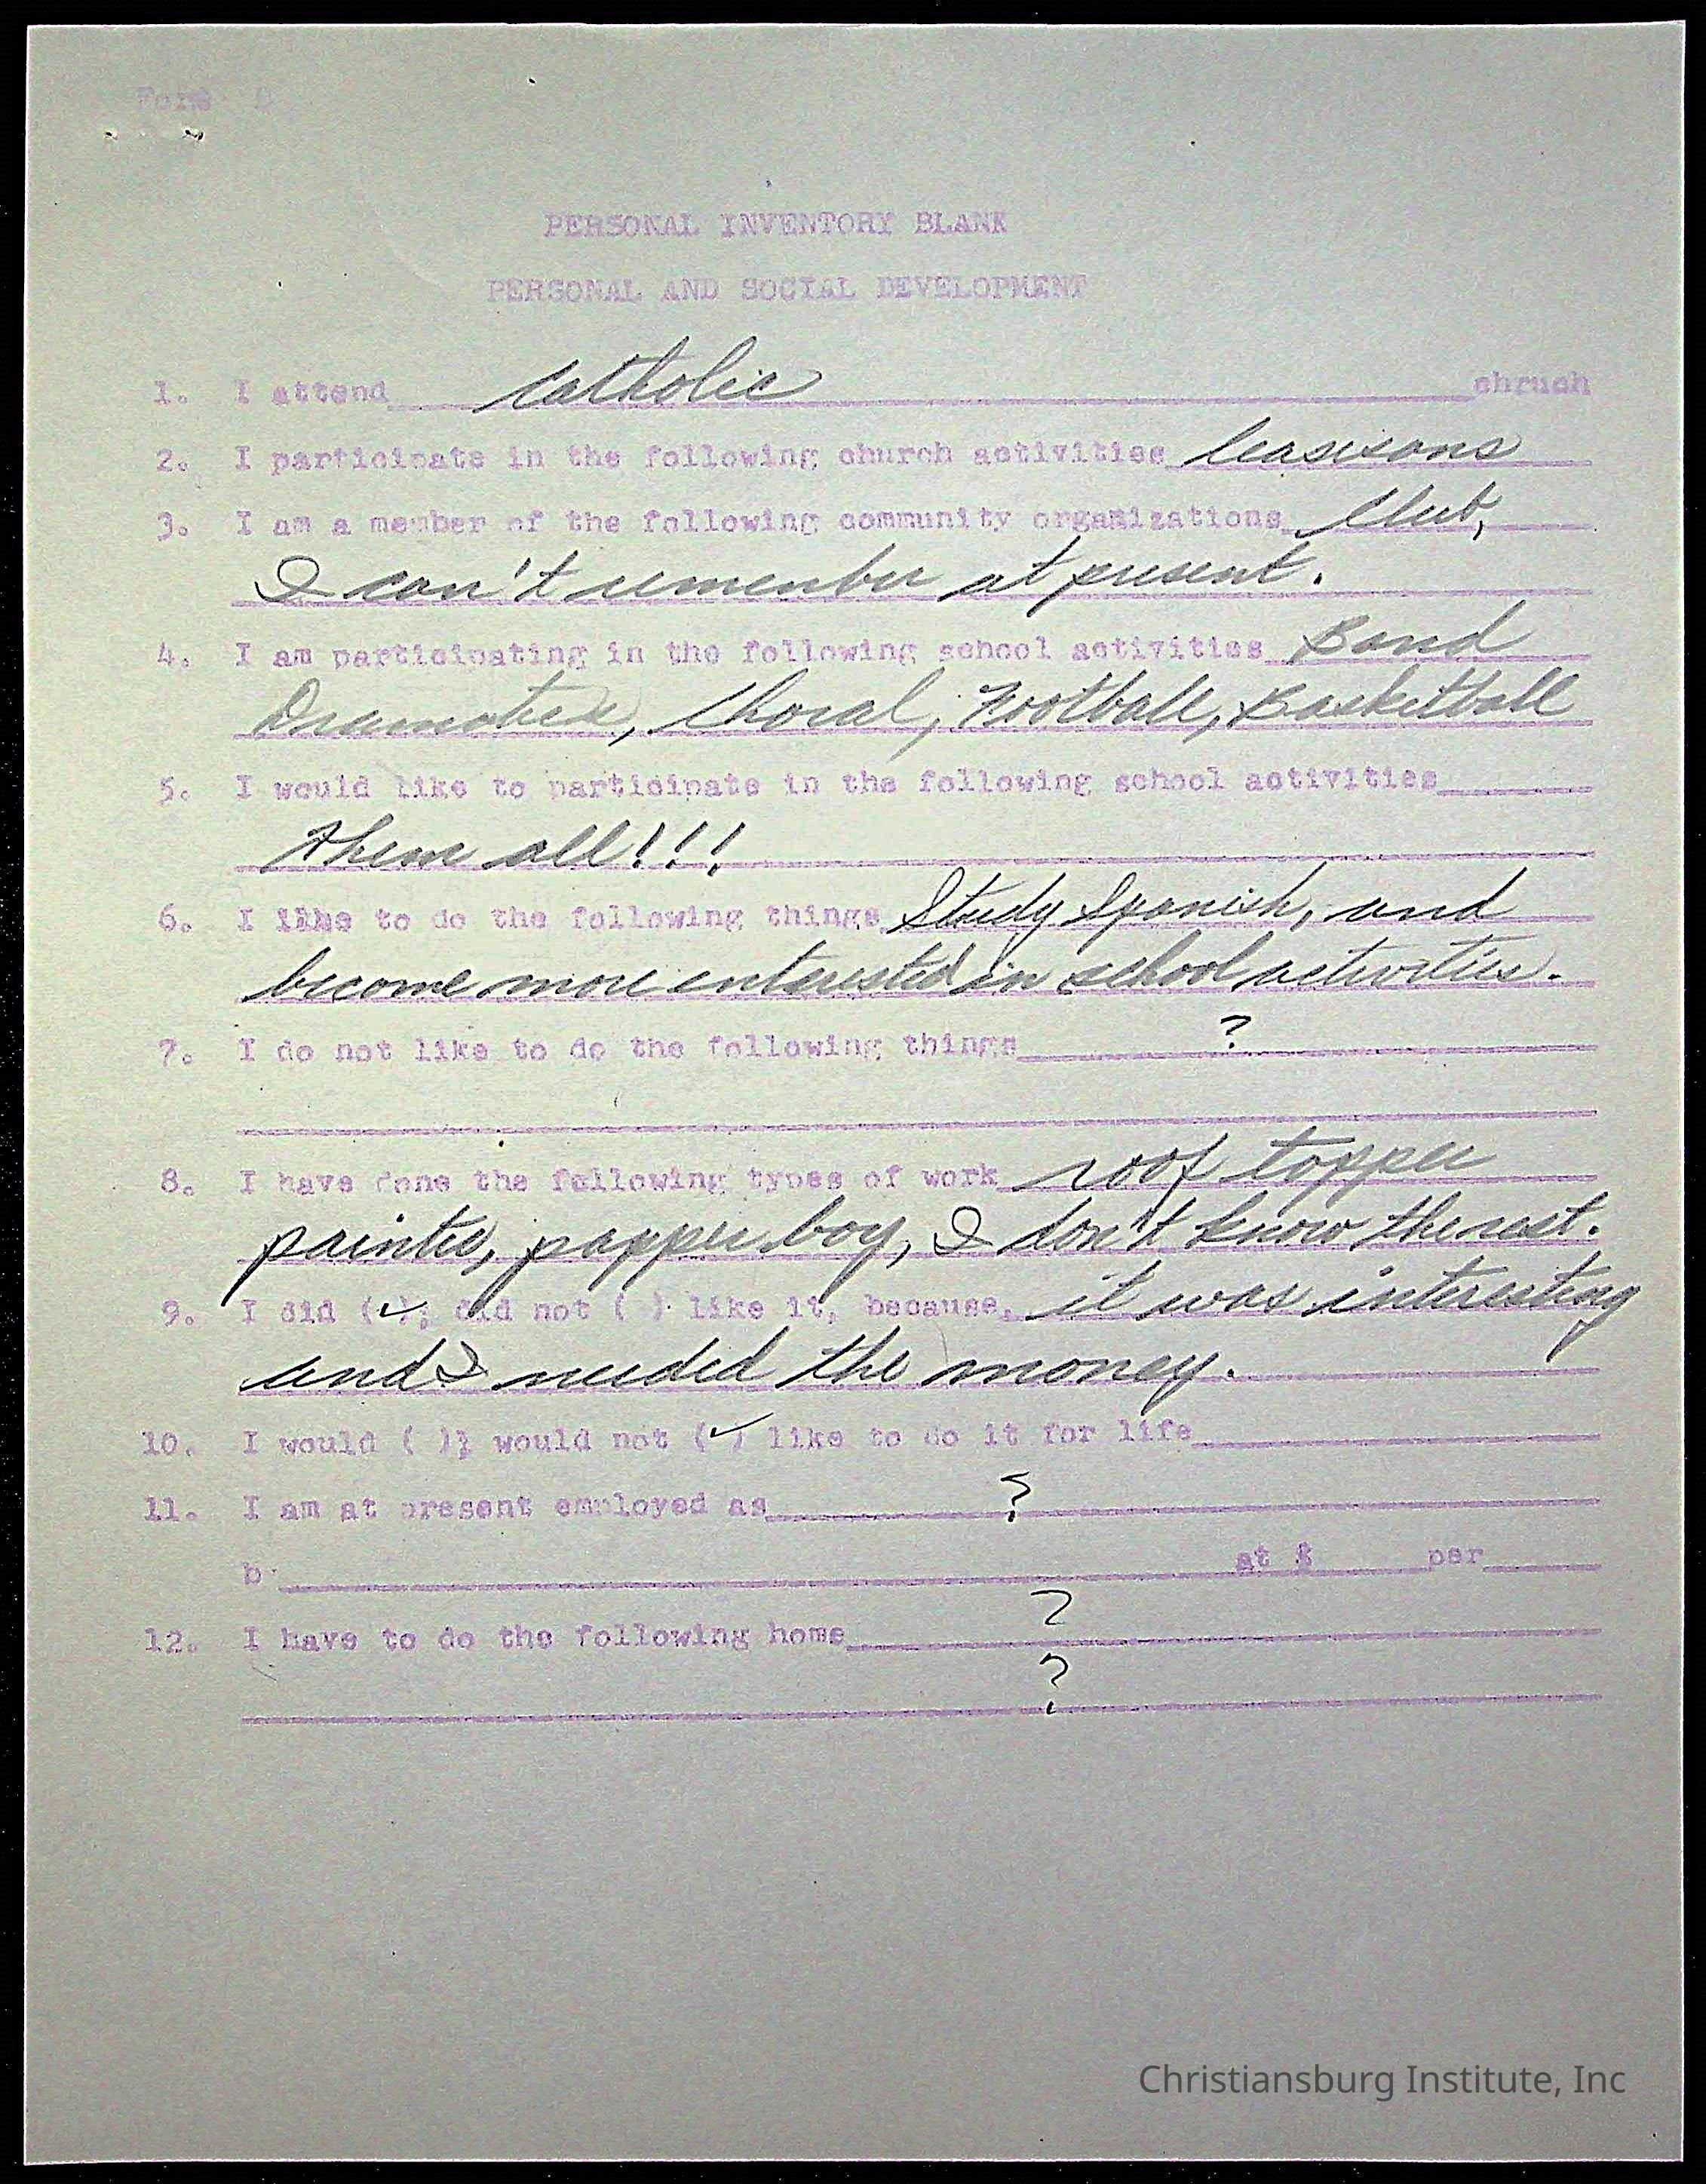 Form B
PERSONAL INVENTORY BLANK
PERSONAL AND SOCIAL DEVELOPMENT
1. I attend Catholic chruch
2. I participate in the following church activities
3. I am a member of the following community organizations Club,
I can't remember at present.
4. I am participating in the following school activities Band
Dramatics, Choral, Football, Basketball
5. I would like to participate in the following school activities
them all!!!
6. I like to do the following things Study Spanish, and
become more interested in school activities.
7. I do not like to do the following things ?
8. I have done the following types of work roof topper
painter, papper boy, I don't know the rest.
9. I did (✓); did not ( ) like it, because, it was interesting
and I needed the money.
10. I would ( ); would not (✓) like to do it for life
11. I am at present employed as ?
b at $ per
12. I have to do the following home ?
?
Christiansburg Institute, Inc